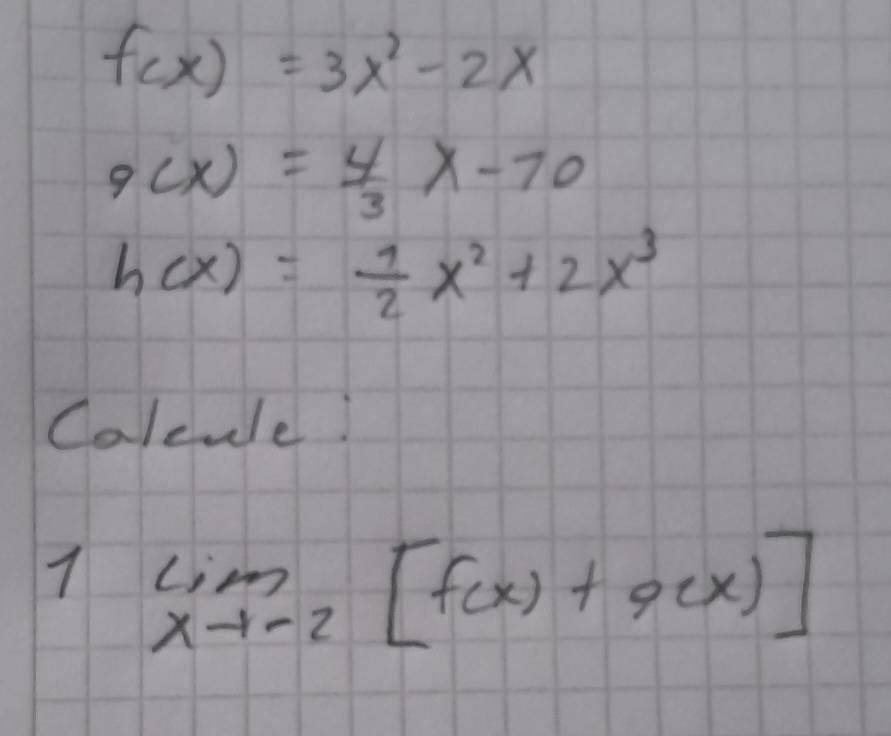 f(x) = 3x² - 2x
g(x) = 4/3 x - 10
h(x) = 1/2 x² + 2x³
Calcule:
1 lim x→-2 [f(x) + g(x)]